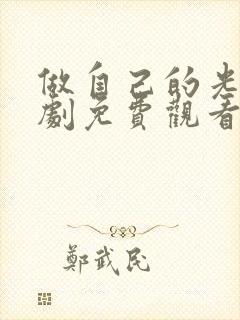 做自己的光
劇免費觀看
鄭武民